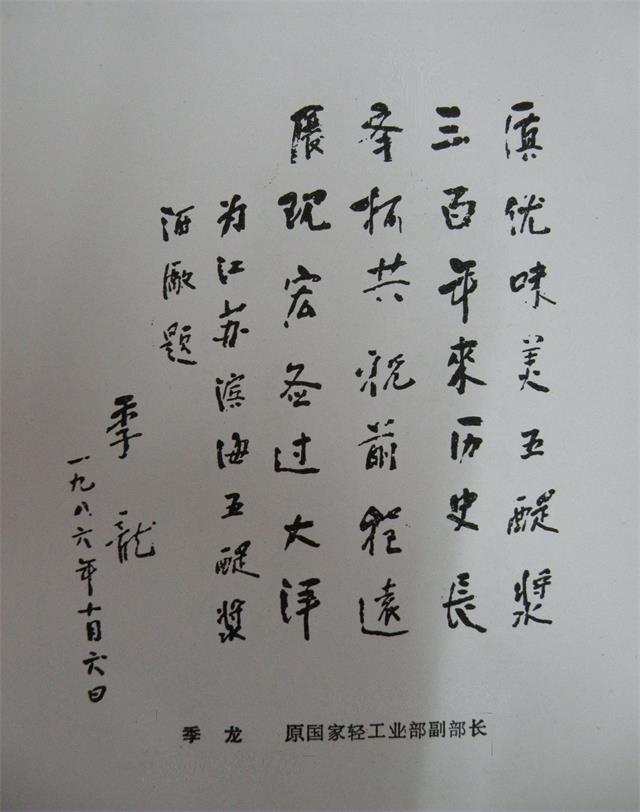 优味美五醍漿
三百年來历史長
举杯共祝前程遠
现宏图过大洋
为江苏滨海五醍漿
酒廠题
季龍
一九八六年十月六日
季 龙 原国家轻工业部副部长